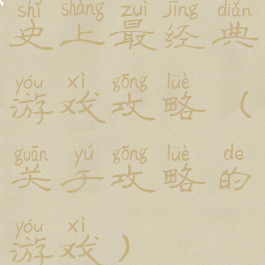 shǐ shàng zuì jīng diǎn
史上最经典
yóu xì gōng lüè
游戏攻略（
guān yú gōng lüè de
关于攻略的
yóu xì
游戏）